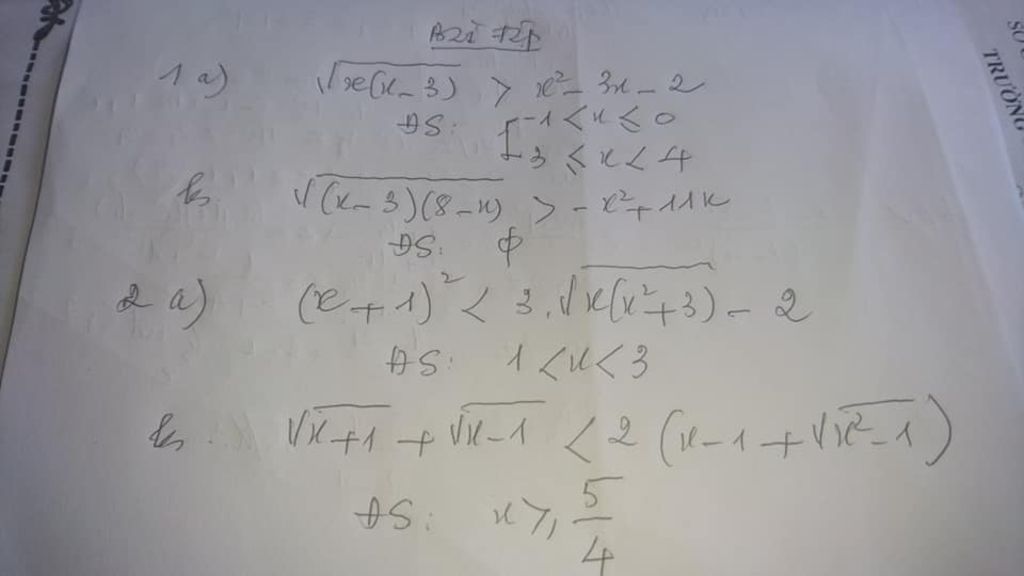 Bài tập
1 a) √x(x-3) > x² - 3x - 2
ĐS: [ -1 < x ≤ 0
3 ≤ x < 4
b. √(x-3)(8-x) > -x² + 11x
ĐS: ϕ
2 a) (x+1)² < 3.√x(x²+3) - 2
ĐS: 1 < x < 3
b. √x+1 + √x-1 < 2 (x-1+√x²-1)
ĐS: x ≥ 5/4
TRƯỜNG